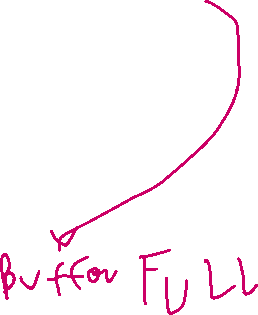 Buffer FULL